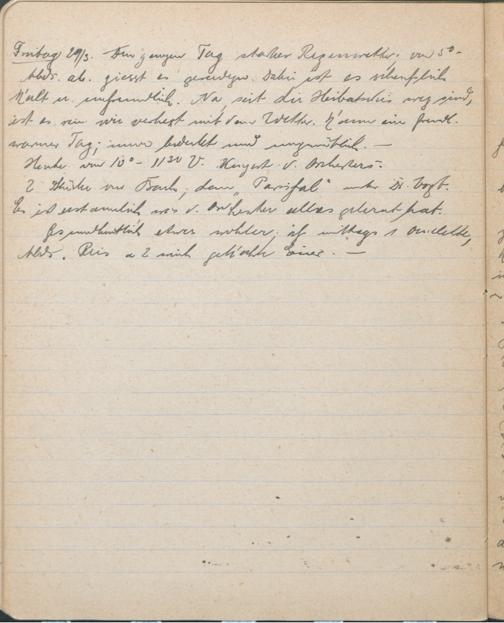 Freitag 29/3. Den ganzen Tag starker Regenwetter. von 5⁰-
Abds. ab. giesst es geradezu. Dabei ist es scheusslich
Kalt u. unfreundlich. Na, seit die weg sind,
ist es wie verhext mit dem Wetter. Kaum ein freundl.
warmer Tag; immer bedeckt und ungemütlich. —
Heute von 10⁰ - 11³⁰ V. Konzert d. Orchesters.
2 Stücke von Bach, dann "Parsifal" unter Dr. Vogt.
Es ist erstaunlich was d. Orchester alles gelernt hat.
Gesundheitlich etwas wohler; ass mittags 1 Omelette,
Abds. Reis u 2 weich gekochte Eier. —